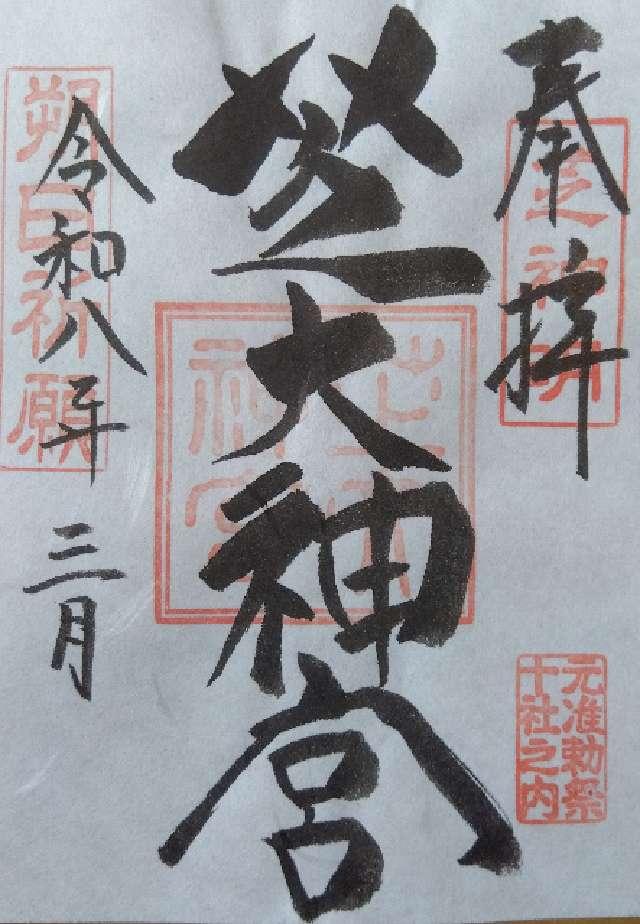 奉拝
芝神明
芝大神宮
令和八年三月
朔日祈願
元准勅祭
十社之内